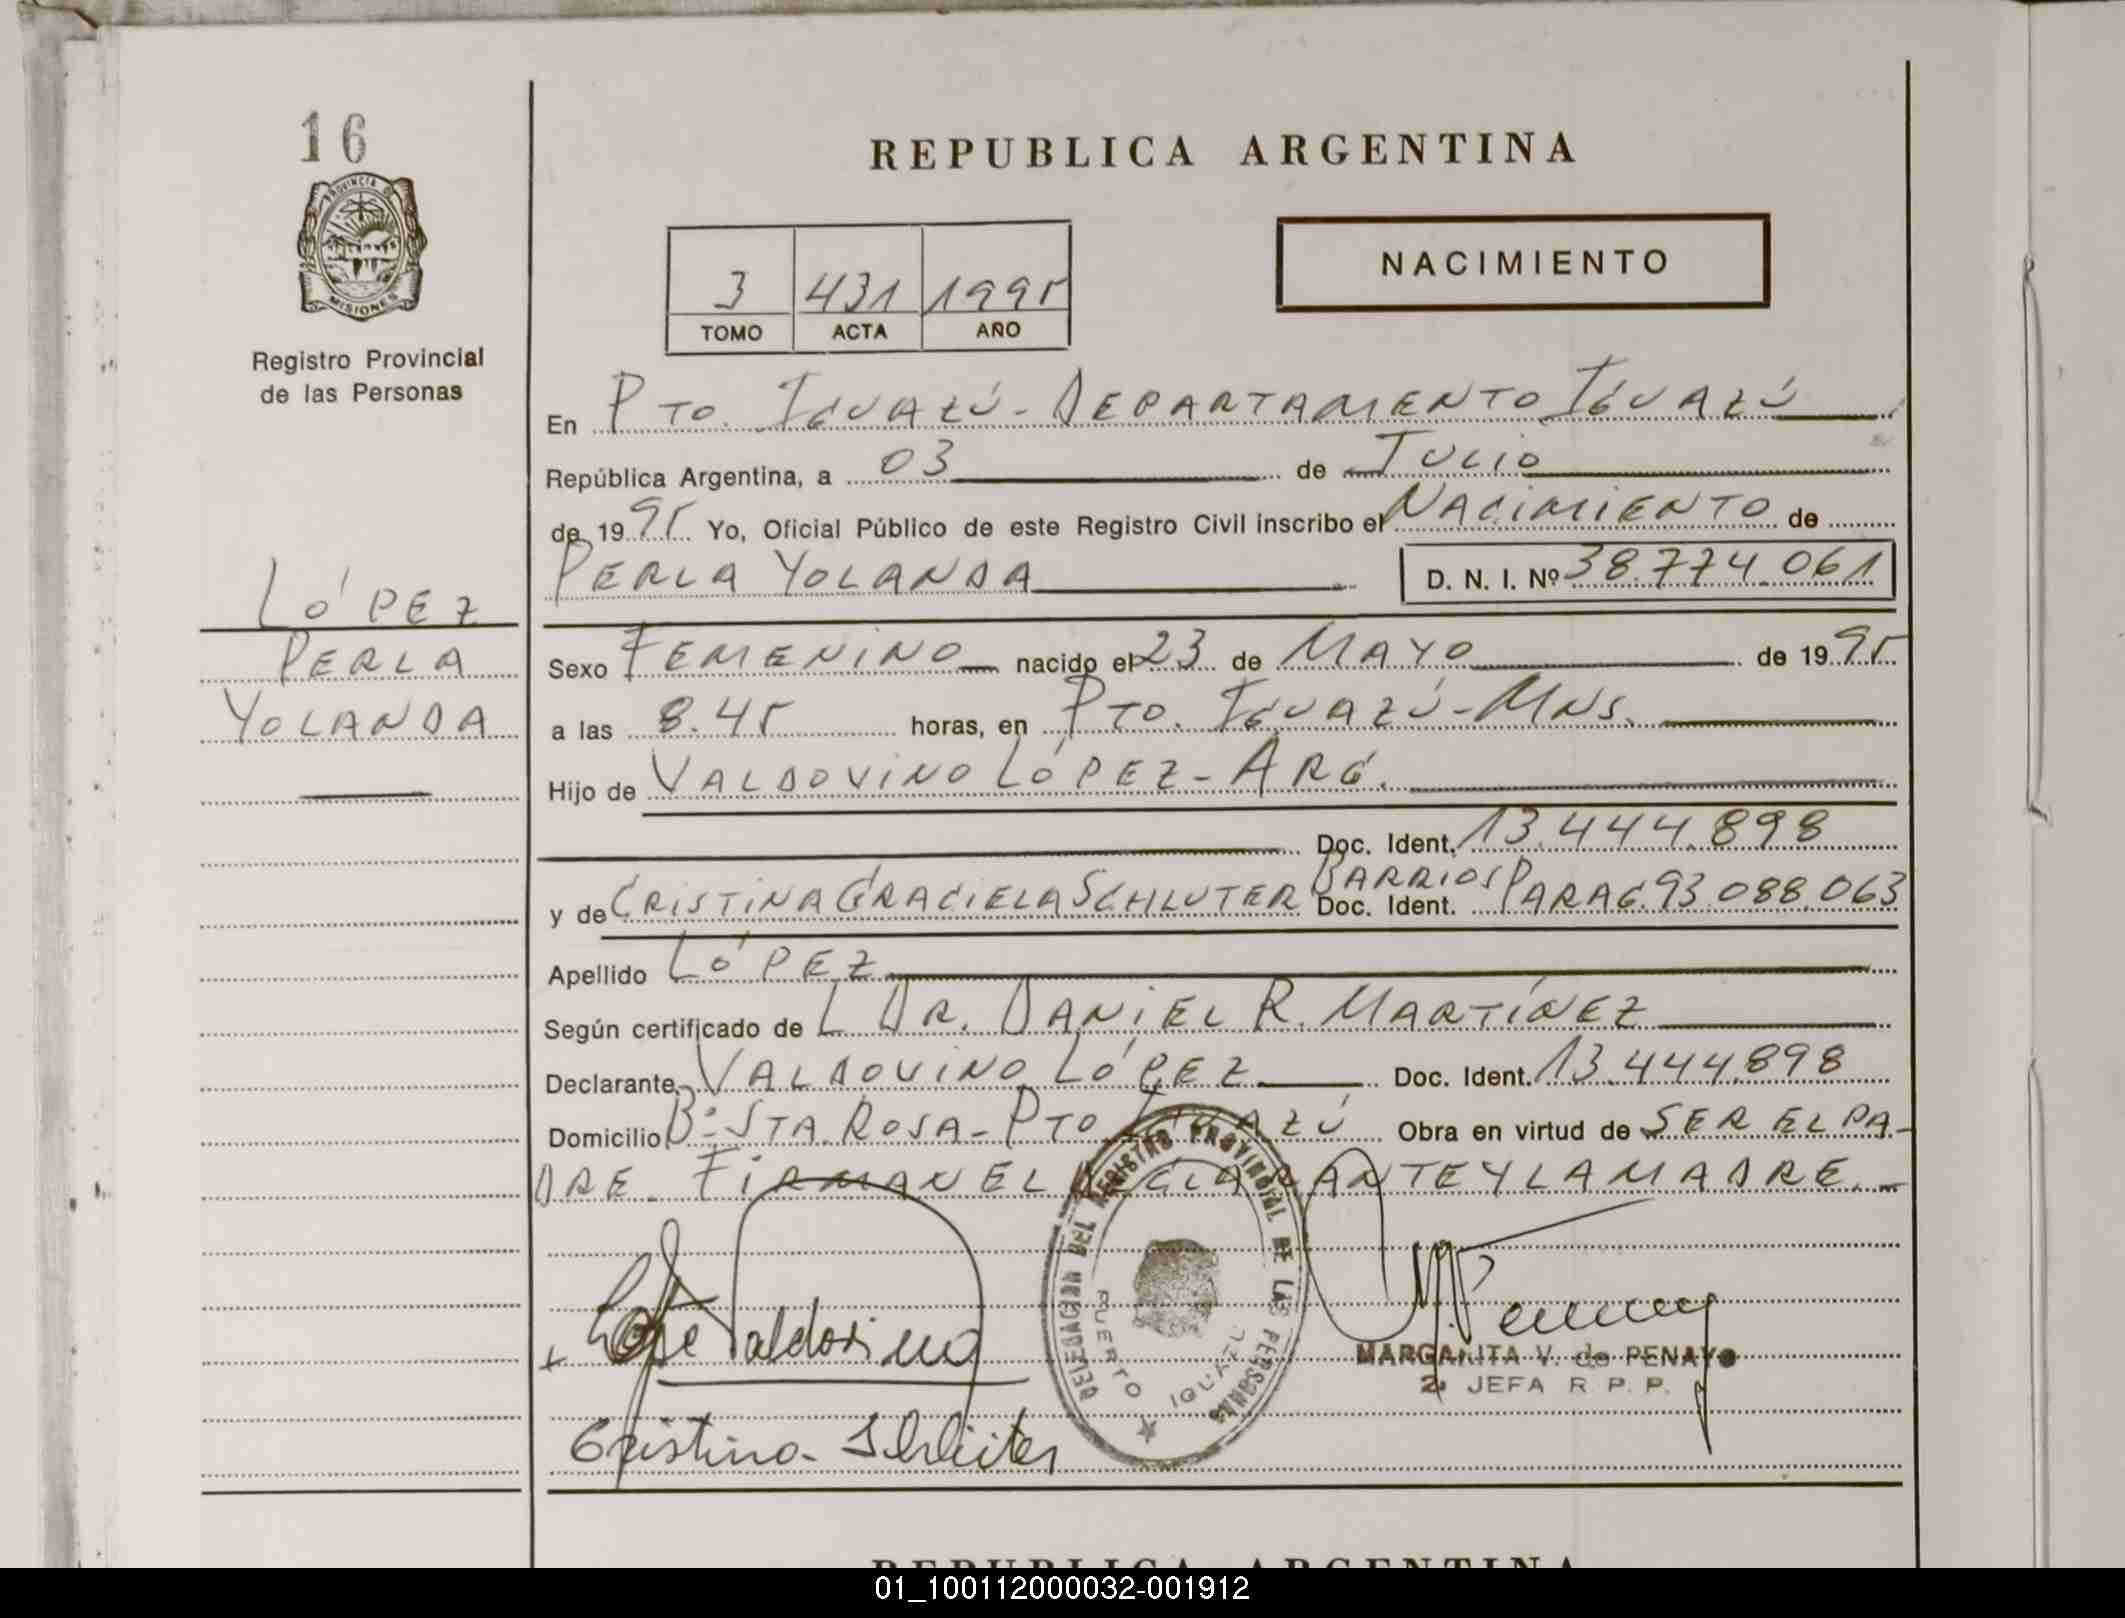 16
PROVINCIA DE
MISIONES
Registro Provincial
de las Personas
LÓPEZ
PERLA
YOLANDA
REPUBLICA ARGENTINA
3 431 1995
TOMO ACTA AÑO
NACIMIENTO
En PTO. IGUAZÚ - DEPARTAMENTO IGUAZÚ
República Argentina, a 03 de JULIO
de 1995 Yo, Oficial Público de este Registro Civil inscribo el NACIMIENTO de
PERLA YOLANDA D. N. I. Nº 38.774.061
Sexo FEMENINO nacido el 23 de MAYO de 1995
a las 8.45 horas, en PTO. IGUAZÚ - MNS.
Hijo de VALDOVINO LÓPEZ - ARG.
Doc. Ident. 13.444.898
y de CRISTINA GRACIELA SCHLUTER BARRIOS Doc. Ident. PARAG. 93.088.063
Apellido LÓPEZ
Según certificado de L DR. DANIEL R. MARTÍNEZ
Declarante VALDOVINO LÓPEZ Doc. Ident. 13.444.898
Domicilio Bº STA. ROSA - PTO IGUAZÚ Obra en virtud de SER EL PA-
DRE. FIRMAN EL DECLARANTE Y LA MADRE.-
DELEGACION DEL REGISTRO PROVINCIAL DE LAS PERSONAS
PUERTO IGUAZU
Valdovino
MARGARITA V. de PENAYO
2ª JEFA R. P. P.
Cristina Schluter
REPUBLICA ARGENTINA
01_100112000032-001912